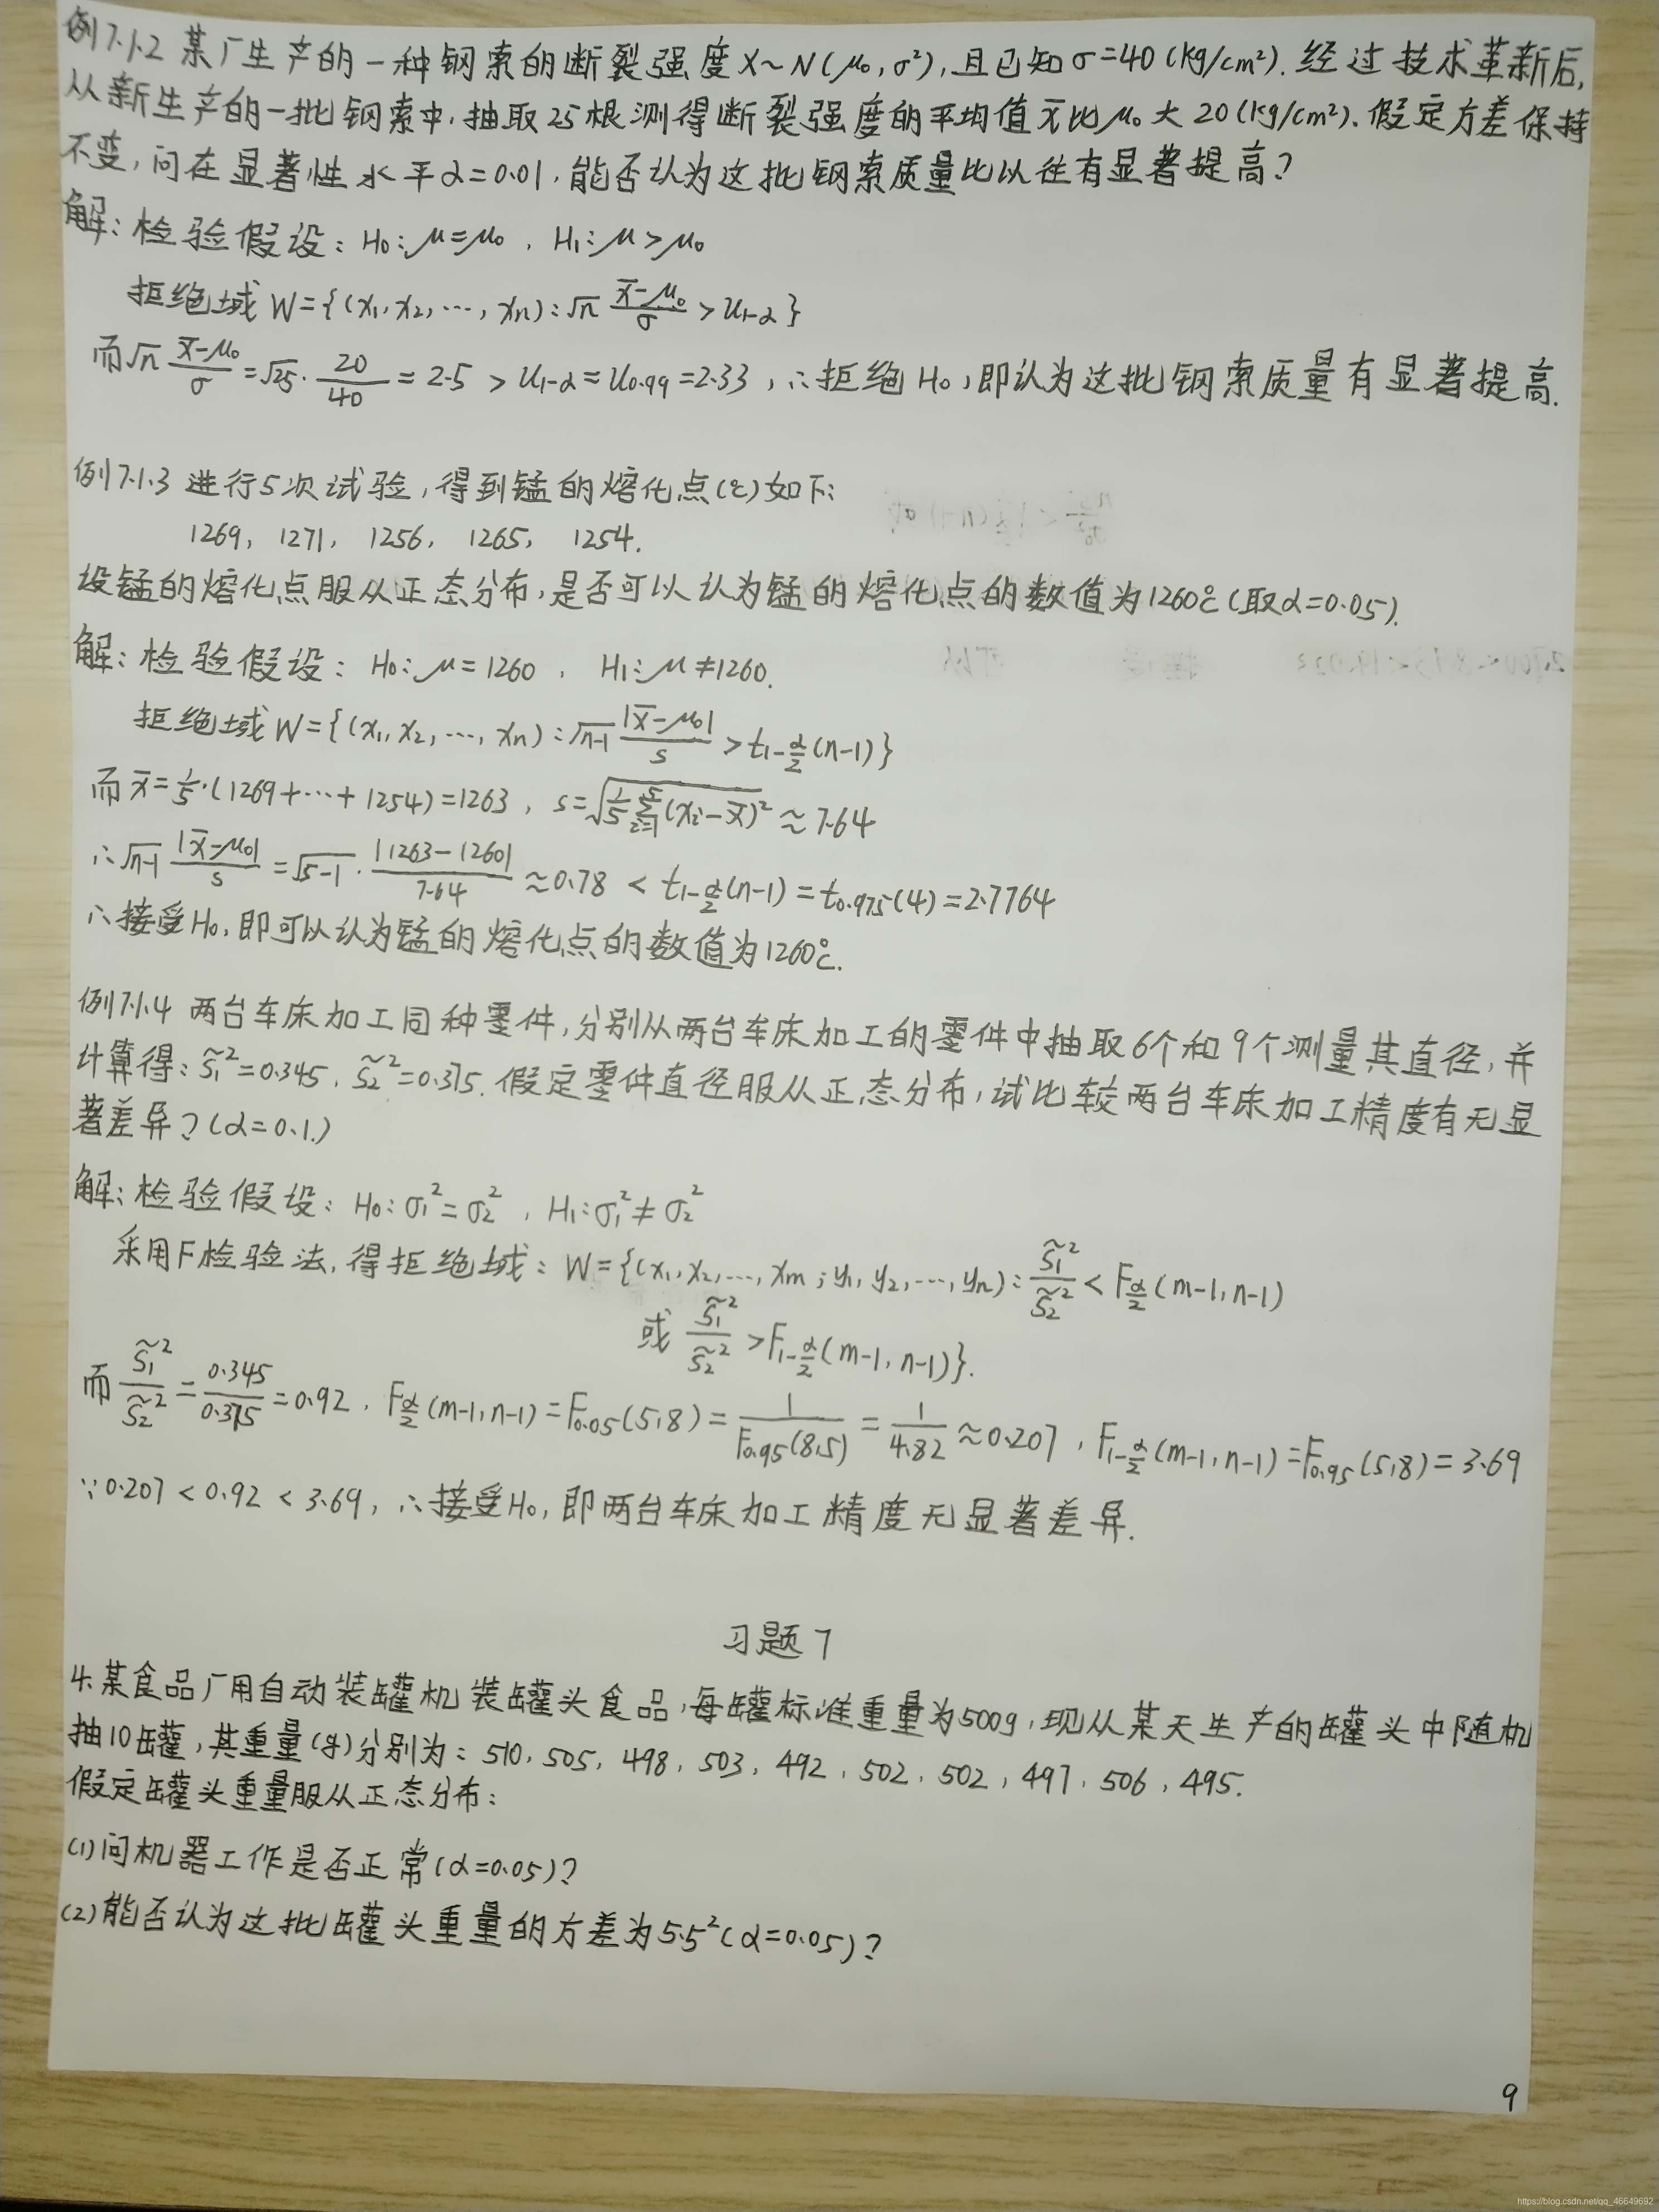 例7.1.2 某厂生产的一种钢索的断裂强度X~N(μ₀,σ²),且已知σ=40(kg/cm²).经过技术革新后,
从新生产的一批钢索中,抽取25根测得断裂强度的平均值x̄比μ₀大20(kg/cm²).假定方差保持
不变,问在显著性水平α=0.01,能否认为这批钢索质量比以往有显著提高?
解:检验假设:H₀:μ=μ₀,H₁:μ>μ₀
拒绝域W={(x₁,x₂,…,xn):√n (x̄-μ₀)/σ > u₁₋α}
而√n (x̄-μ₀)/σ=√25·20/40=2.5>u₁₋α=u₀.₉₉=2.33,∴拒绝H₀,即认为这批钢索质量有显著提高.
例7.1.3 进行5次试验,得到锰的熔化点(℃)如下:
1269, 1271, 1256, 1265, 1254.
设锰的熔化点服从正态分布,是否可以认为锰的熔化点的数值为1260℃(取α=0.05).
解:检验假设:H₀:μ=1260,H₁:μ≠1260.
拒绝域W={(x₁,x₂,…,xn):√(n-1) |x̄-μ₀|/s > t₁₋α/₂(n-1)}
而x̄=1/5·(1269+…+1254)=1263,s=√(1/5 Σᵢ₌₁⁵(xᵢ-x̄)²)≈7.64
∴√(n-1) |x̄-μ₀|/s=√(5-1)·|1263-1260|/7.64≈0.78<t₁₋α/₂(n-1)=t₀.₉₇₅(4)=2.7764
∴接受H₀,即可以认为锰的熔化点的数值为1260℃.
例7.1.4 两台车床加工同种零件,分别从两台车床加工的零件中抽取6个和9个测量其直径,并
计算得:s̃₁²=0.345,s̃₂²=0.375.假定零件直径服从正态分布,试比较两台车床加工精度有无显
著差异?(α=0.1)
解:检验假设:H₀:σ₁²=σ₂²,H₁:σ₁²≠σ₂²
采用F检验法,得拒绝域:W={(x₁,x₂,…,xm;y₁,y₂,…,yn):s̃₁²/s̃₂²<Fα/₂(m-1,n-1)
或 s̃₁²/s̃₂²>F₁₋α/₂(m-1,n-1)}.
而 s̃₁²/s̃₂²=0.345/0.375=0.92,Fα/₂(m-1,n-1)=F₀.₀₅(5,8)=1/F₀.₉₅(8,5)=1/4.82≈0.207,F₁₋α/₂(m-1,n-1)=F₀.₉₅(5,8)=3.69
∵0.207<0.92<3.69,∴接受H₀,即两台车床加工精度无显著差异.
习题7
4.某食品厂用自动装罐机装罐头食品,每罐标准重量为500g,现从某天生产的罐头中随机
抽10罐,其重量(g)分别为:510,505,498,503,492,502,502,497,506,495.
假定罐头重量服从正态分布:
(1)问机器工作是否正常(α=0.05)?
(2)能否认为这批罐头重量的方差为5.5²(α=0.05)?
9
https://blog.csdn.net/qq_46649692